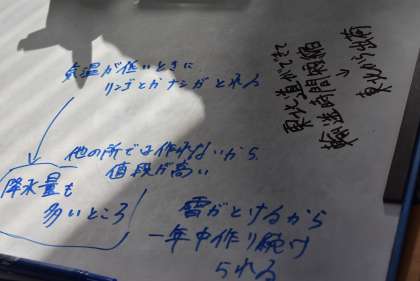 気温が低いときに
リンゴとかナシがとれる
他の所では作れないから
値段が高い
降水量も
多いところ
雪がとけるから
一年中作り続け
られる
東北道ができて
輸送時間短縮
↓
東北から出荷